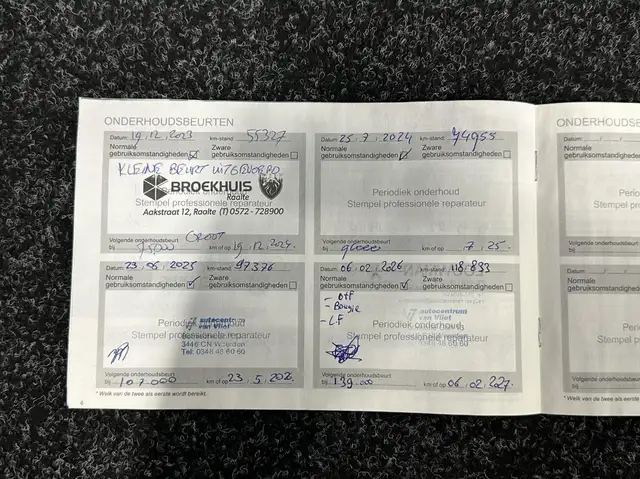 ONDERHOUDSBEURTEN
Datum: 19.12.2023 km-stand: 55327
Normale gebruiksomstandigheden Zware gebruiksomstandigheden
KLEINE BEURT UITGEVOERD
Periodiek onderhoud
BROEKHUIS
Raalte
Stempel professionele reparateur
Aakstraat 12, Raalte (T) 0572 - 728900
GROOT
Volgende onderhoudsbeurt bij km of op 19.12.2024.
Datum: 25.7.2024 km-stand: 74955
Normale gebruiksomstandigheden Zware gebruiksomstandigheden
Periodiek onderhoud
Stempel professionele reparateur
Volgende onderhoudsbeurt bij km of op 7.25.
23.05.2025 km-stand: 97376
Normale gebruiksomstandigheden Zware gebruiksomstandigheden
autocentrum
van Vliet
Periodiek onderhoud
Stempel professionele reparateur
Tel: 0348 48 60 60
Volgende onderhoudsbeurt bij km of op 23.5.202
Datum: 06.02.2026 km-stand: 118.833
Normale gebruiksomstandigheden Zware gebruiksomstandigheden
- Bougie
- LF
autocentrum
van Vliet
Periodiek onderhoud
Stempel professionele reparateur
0348 48 60 60
Volgende onderhoudsbeurt bij 139.000 km of op 06.02.2027.
* Welk van de twee als eerste wordt bereikt.
ONDERHOUDSB
Datum:
Normale
gebruiksomstandigh
Volgende onderhoudsbeurt
bij
Datum:
Normale
gebruiksomstandigh
Volgende onderhoudsbeurt
bij
* Welk van de twee als